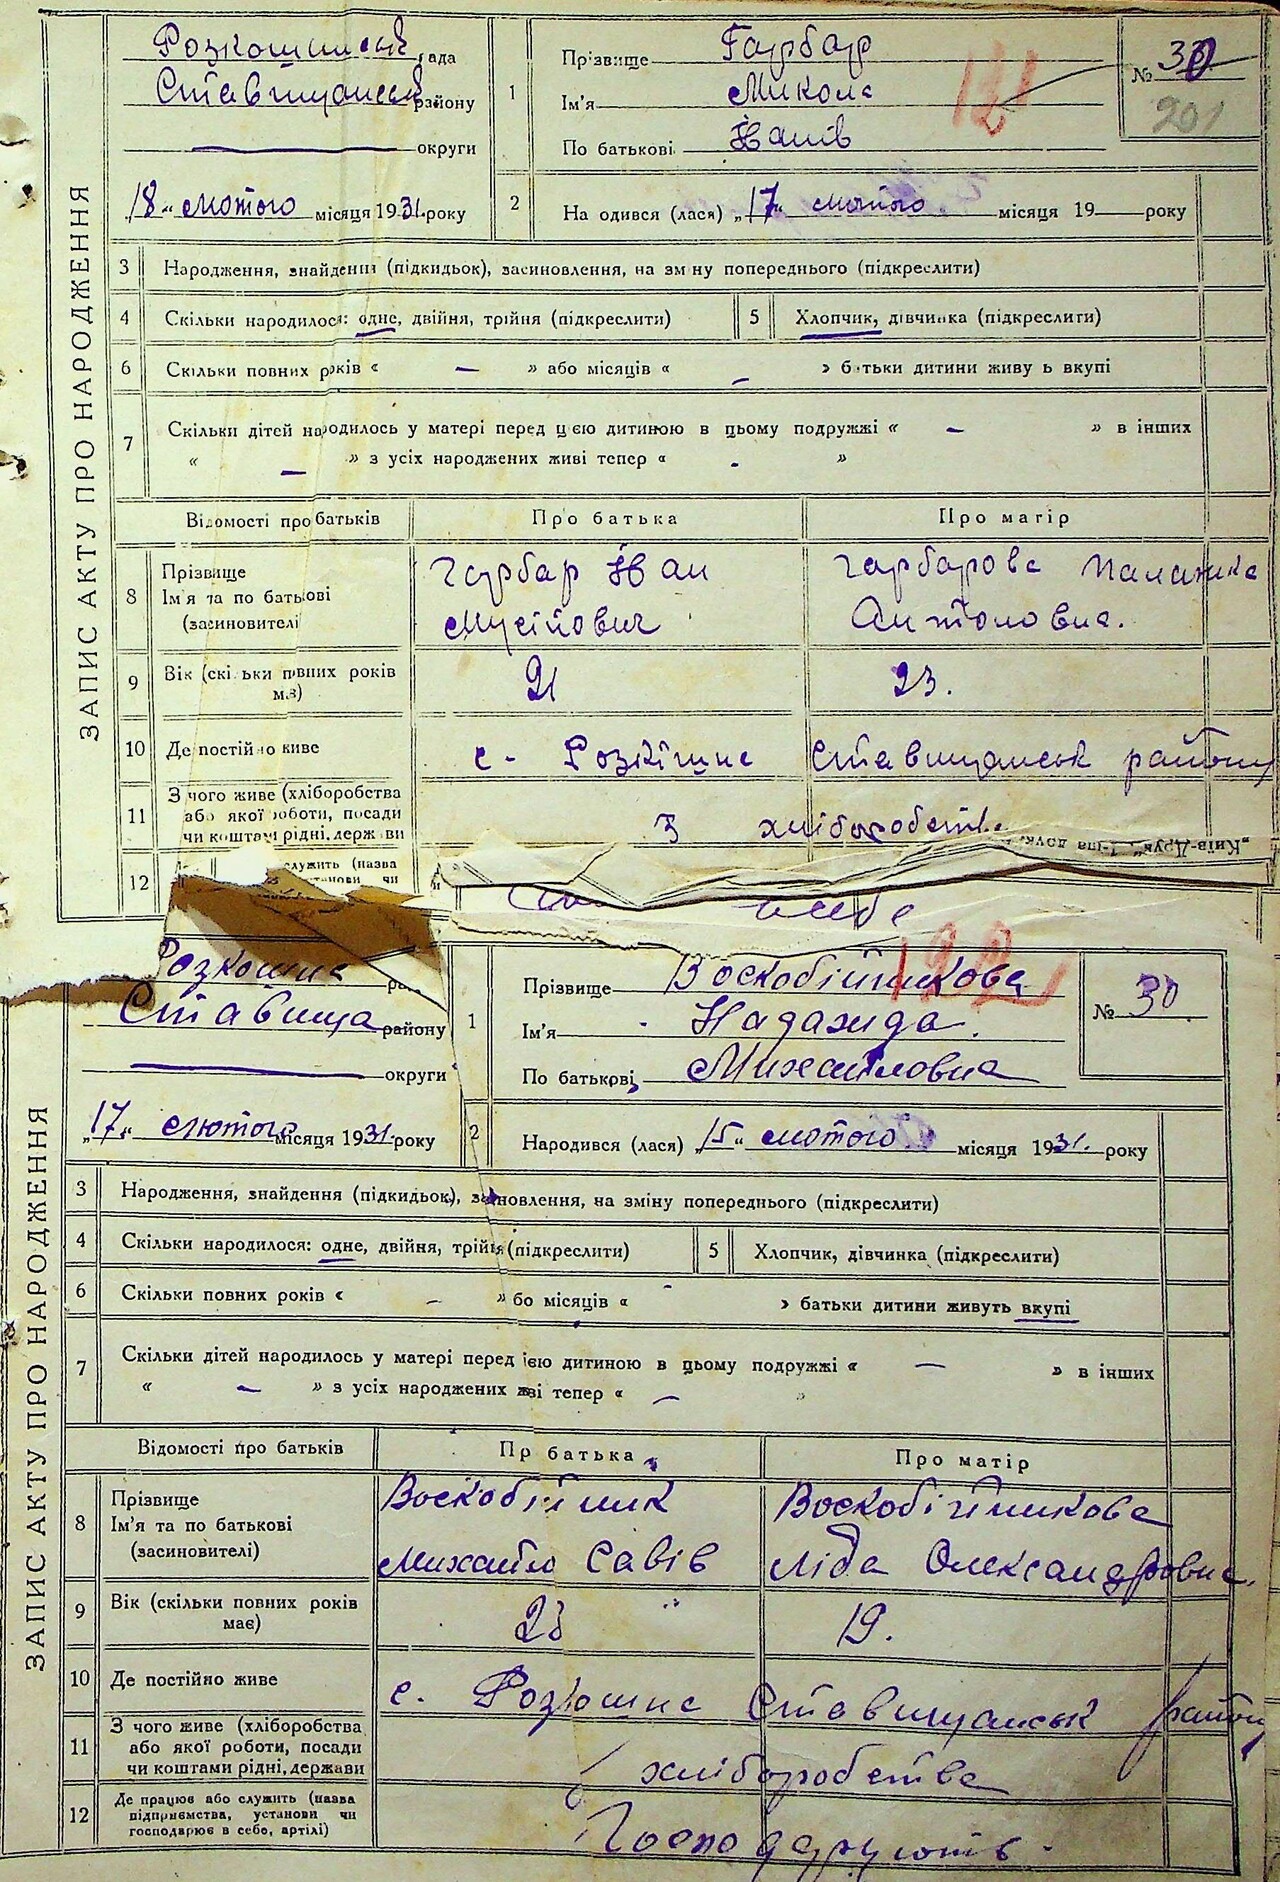 ЗАПИС АКТУ ПРО НАРОДЖЕННЯ
Розкошинськ рада
Ставищанськ району
округи
„18“ лютого місяця 1931 року
1 Прізвище Гарбар
Ім'я Микола
По батькові Іванів
№ 30
201
121
2 На одився (лася) „17“ лютого місяця 19 року
3 Народження, знайдення (підкидьок), засиновлення, на зм ну попереднього (підкреслити)
4 Скільки народилося: одне, двійня, трійня (підкреслити)
5 Хлопчик, дівчинка (підкреслити)
6 Скільки повних років « — » або місяців « — » б тьки дитини живу ь вкупі
7 Скільки дітей народилось у матері перед цією дитиною в цьому подружжі « — » в інших
« — » з усіх народжених живі тепер « - »
Відомості про батьків Про батька Про матір
8 Прізвище
Ім'я та по батькові
(засиновителі
Гарбар Іван
Мусійович
Гарбарова Палажка
Антоновна.
9 Вік (скільки повних років
має)
21 23.
10 Де постійно живе
с. Розкішне Ставищанськ району
11 З чого живе (хліборобства
або якої роботи, посади
чи коштами рідні, держави
З хліборобства
„Київ-Друк“
12 служить (назва
установи чи
Розкошна рада
Ставища району
округи
„17“ лютого місяця 1931 року
1 Прізвище Воскобійникова
Ім'я Надежда
По батькові Михайловна
№ 30
122
2 Народився (лася) „15“ лютого місяця 1931. року
3 Народження, знайдення (підкидьок), за новлення, на зміну попереднього (підкреслити)
4 Скільки народилося: одне, двійня, трійня (підкреслити)
5 Хлопчик, дівчинка (підкреслити)
6 Скільки повних років « — » бо місяців « - » батьки дитини живуть вкупі
7 Скільки дітей народилось у матері перед ією дитиною в цьому подружжі « — » в інших
« — » з усіх народжених жві тепер « — »
Відомості про батьків Пр батька Про матір
8 Прізвище
Ім'я та по батькові
(засиновителі)
Воскобійник
Михайло Савів
Воскобійникова
Ліда Олександровна.
9 Вік (скільки повних років
має)
23 19.
10 Де постійно живе
с. Розкошне Ставищанськ району
11 З чого живе (хліборобства
або якої роботи, посади
чи коштами рідні, держави
хліборобства
12 Де працює або служить (назва
підприємства, установи чи
господарює в себе, артілі)
Господарують.
ЗАПИС АКТУ ПРО НАРОДЖЕННЯ